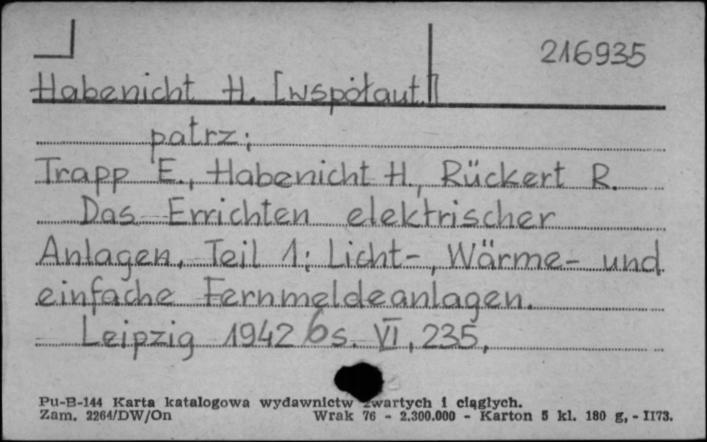 216935
Habenicht H. [współaut.]
patrz:
Trapp E., Habenicht H., Rückert R.
Das Errichten elektrischer
Anlagen. Teil 1: Licht-, Wärme- und
einfache Fernmeldeanlagen.
Leipzig 1942 s. VI, 235,
Pu-B-144 Karta katalogowa wydawnictw zwartych i ciągłych.
Zam. 2264/DW/On Wrak 76 - 2.300.000 - Karton 5 kl. 180 g, - II73.